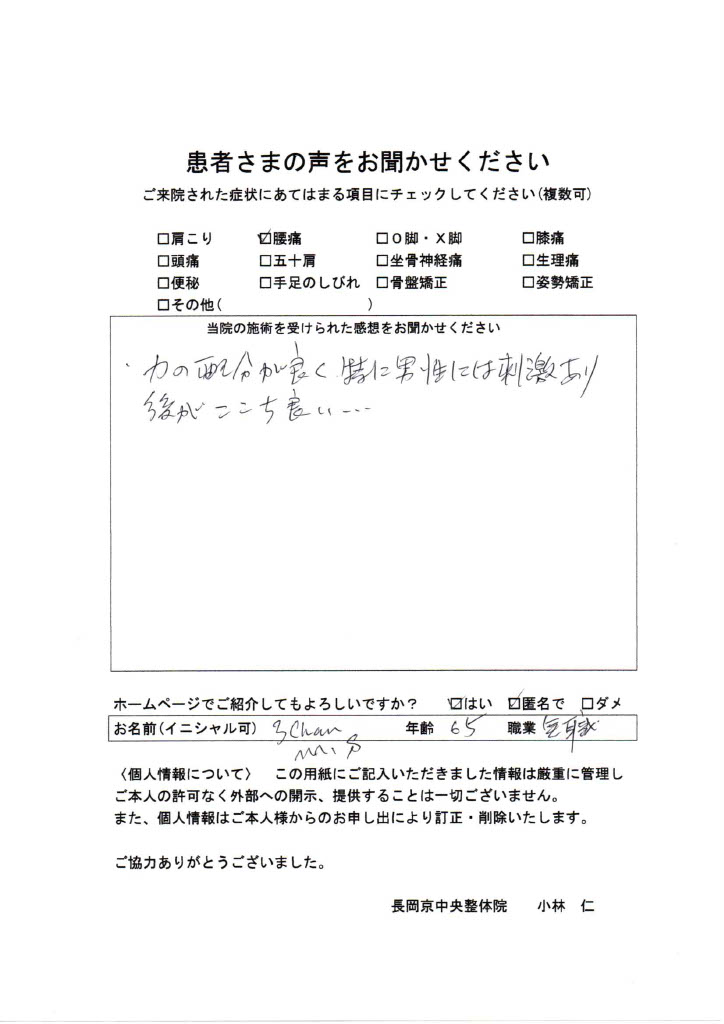 患者さまの声をお聞かせください
ご来院された症状にあてはまる項目にチェックしてください(複数可)
□肩こり ☑腰痛 □O脚・X脚 □膝痛
□頭痛 □五十肩 □坐骨神経痛 □生理痛
□便秘 □手足のしびれ □骨盤矯正 □姿勢矯正
□その他( )
当院の施術を受けられた感想をお聞かせください
・力の配分が良く特に男性には刺激あり
後がここち良い---
ホームページでご紹介してもよろしいですか? ☑はい ☑匿名で □ダメ
お名前(イニシャル可) 3chan 年齢 65 職業 無職
M.S
〈個人情報について〉 この用紙にご記入いただきました情報は厳重に管理し
ご本人の許可なく外部への開示、提供することは一切ございません。
また、個人情報はご本人様からのお申し出により訂正・削除いたします。
ご協力ありがとうございました。
長岡京中央整体院 小林 仁